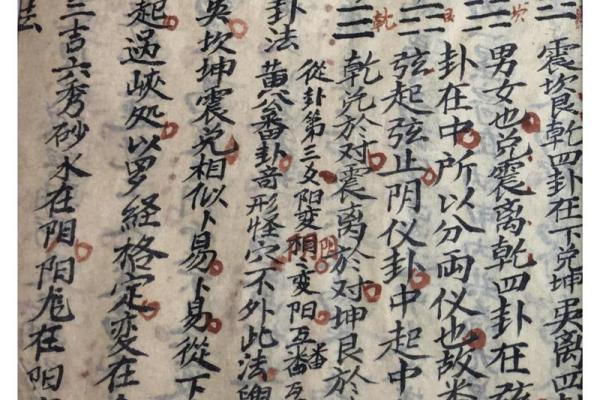 震坎艮乾四卦在下兑坤巽离四
男女也兑震离乾四卦在
卦在中所以分両仪也故
弦起弦止阴仪卦中起中
乾兑於对震离於对坤艮於
乾
坎
卦法
從卦第三爻阳变相变阳互番互番
黄公番卦奇形怪穴不外此法
巽坎坤震兑相似卜易卜易從下
起过峡处以罗経格定变在
三吉六秀砂水在阴阳龙在阳
法